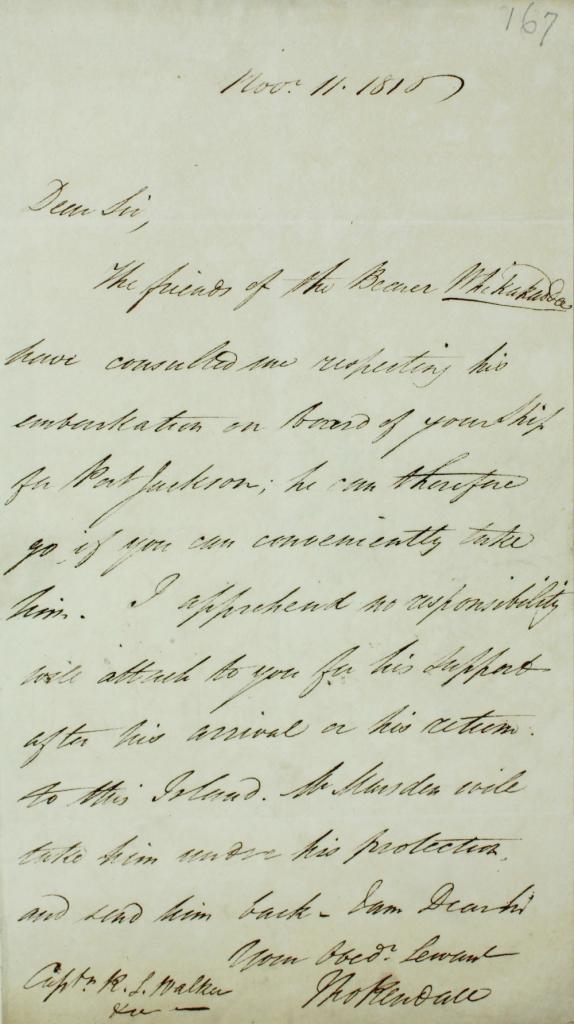 167
Novr. 11. 1815
Dear Sir,
The friends of the Bearer
have consulted me respecting his
embarkation on board of your Ship
for Port Jackson; he can therefore
go, if you can conveniently take
him. I apprehend no responsibility
will attach to you for his support
after his arrival or his return
to this Island. Mr Marsden will
take him under his protection,
and send him back - I am Dear Sir
Your Obedt. Servant
Captn. R. S. Walker
Thos Kendall